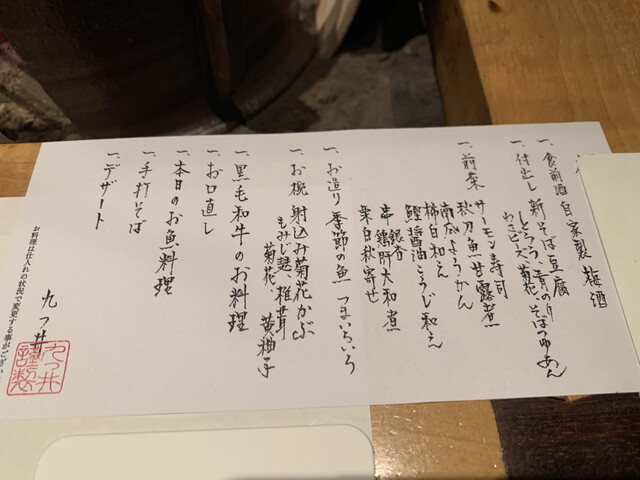 一、食前酒 自家製 梅酒
一、付出し 新そば豆腐
とろろ、青のり
わさび、菊花、そばつゆあん
一、前菜 サーモン寿司
秋刀魚甘露煮
南瓜ようかん
柿白和え
鰹醤油こうじ和え
銀杏
串 鶏肝大和煮
栗白秋寄せ
一、お造り 季節の魚 つまいろいろ
一、お椀 射込み菊花かぶ
もみじ麩、椎茸
菊花、黄柚子
一、黒毛和牛のお料理
一、お口直し
一、本日のお魚料理
一、手打そば
一、デザート
九つ井
九つ井
謹製
お料理は仕入れの状況で変更する事がござい